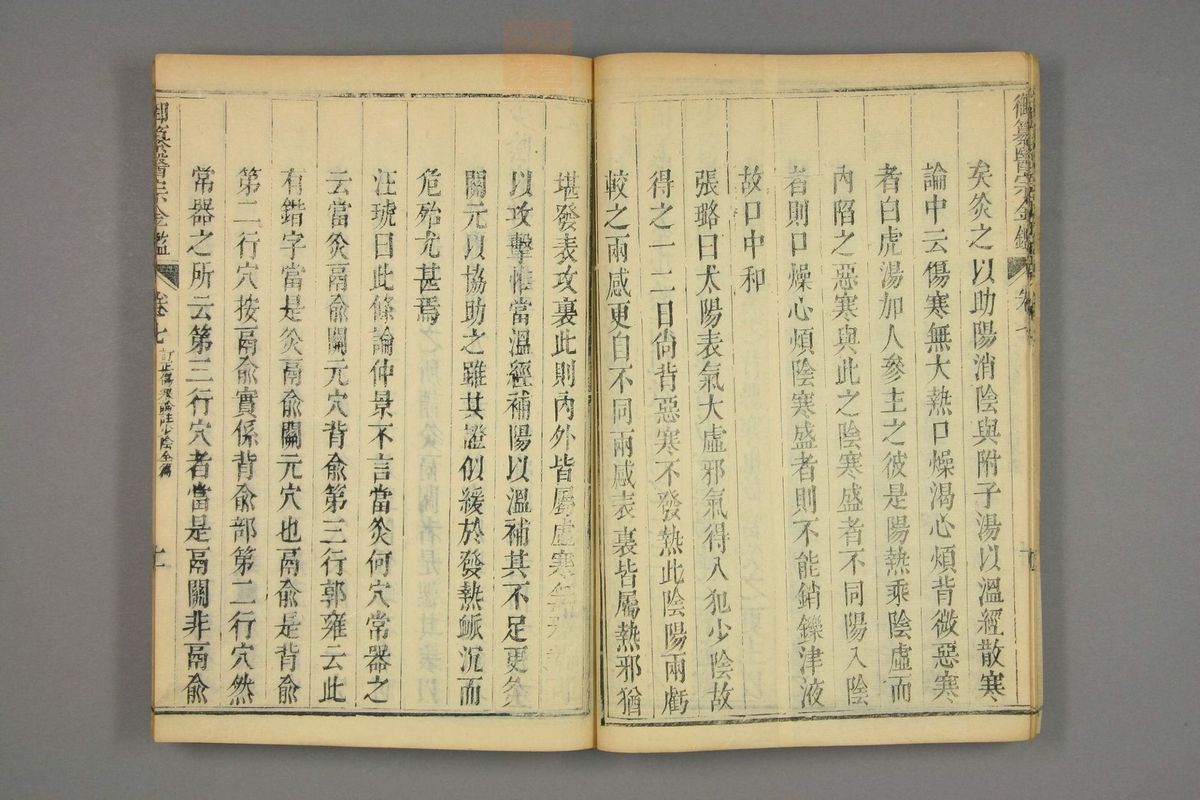 御纂醫宗金鑑 卷七
矣灸之以助陽消陰與附子湯以溫經散寒
論中云傷寒無大熱口燥渴心煩背微惡寒
者白虎湯加人參主之彼是陽熱乘陰虛而
內陷之惡寒與此之陰寒盛者不同陽入陰
者則口燥心煩陰寒盛者則不能銷鑠津液
故口中和
張璐曰太陽表氣大虛邪氣得入犯少陰故
得之一二日尚背惡寒不發熱此陰陽兩虧
較之兩感更自不同兩感表裏皆屬熱邪猶
堪發表攻裏此則內外皆屬虛寒無邪
以攻擊惟當溫經補陽以溫補其不足更灸
關元以協助之雖其證似緩於發熱脈沉而
危殆尤甚焉
汪琥曰此條論仲景不言當灸何穴常器之
云當灸鬲俞關元穴背俞第三行郭雍云此
有錯字當是灸鬲俞關元穴也鬲俞是背俞
第二行穴按鬲俞實係背俞部第二行穴然
常器之所云第三行穴者當是鬲關非鬲俞
御纂醫宗金鑑 卷七 訂正傷寒論註少陰全篇 十一